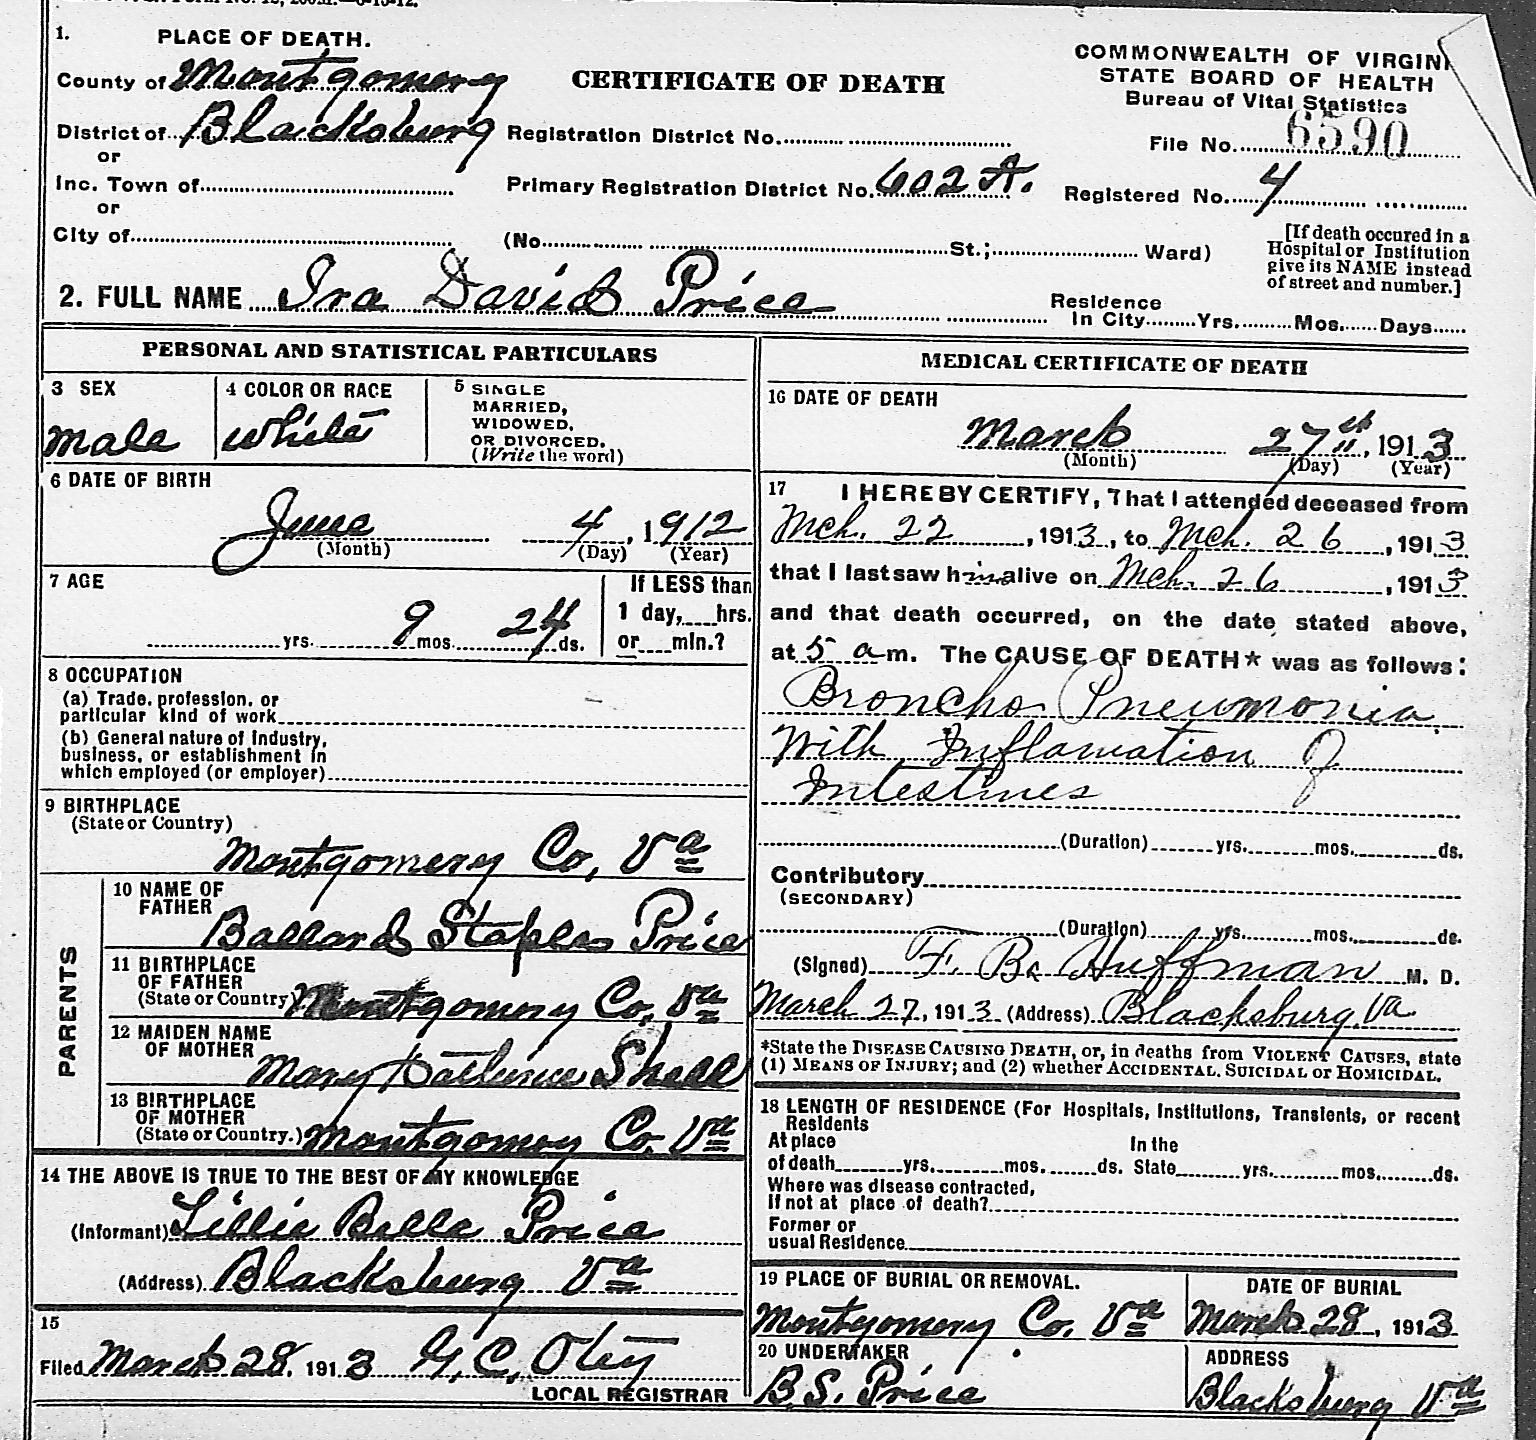 1. PLACE OF DEATH.
County of Montgomery
District of Blacksburg
or
Inc. Town of
or
City of
CERTIFICATE OF DEATH
Registration District No.
Primary Registration District No. 602 A.
(No. St.; Ward)
COMMONWEALTH OF VIRGINI
STATE BOARD OF HEALTH
Bureau of Vital Statistics
File No. 6590
Registered No. 4
[If death occured in a
Hospital or Institution
give its NAME instead
of street and number.]
2. FULL NAME Ira David Price
Residence
In City Yrs. Mos. Days
PERSONAL AND STATISTICAL PARTICULARS
3 SEX
male
4 COLOR OR RACE
white
5 SINGLE
MARRIED,
WIDOWED,
OR DIVORCED.
(Write the word)
6 DATE OF BIRTH
June 4, 1912
(Month) (Day) (Year)
7 AGE
yrs. 9 mos. 24 ds.
If LESS than
1 day, hrs.
or min.?
8 OCCUPATION
(a) Trade, profession, or
particular kind of work
(b) General nature of Industry,
business, or establishment in
which employed (or employer)
9 BIRTHPLACE
(State or Country)
Montgomery Co, Va
PARENTS
10 NAME OF
FATHER
Ballard Staples Price
11 BIRTHPLACE
OF FATHER
(State or Country) Montgomery Co. Va
12 MAIDEN NAME
OF MOTHER
Mary Katherine Shell
13 BIRTHPLACE
OF MOTHER
(State or Country.) Montgomery Co. Va
14 THE ABOVE IS TRUE TO THE BEST OF MY KNOWLEDGE
(Informant) Lillie Belle Price
(Address) Blacksburg Va
15
Filed March 28, 1913 G. C. Oley
LOCAL REGISTRAR
MEDICAL CERTIFICATE OF DEATH
16 DATE OF DEATH
March 27th, 1913
(Month) (Day) (Year)
17 I HEREBY CERTIFY, That I attended deceased from
Mch. 22, 1913, to Mch. 26, 1913
that I last saw him alive on Mch. 26, 1913
and that death occurred, on the date stated above,
at 5 a m. The CAUSE OF DEATH* was as follows:
Broncho Pneumonia
With Inflamation of
Intestines
(Duration) yrs. mos. ds.
Contributory
(SECONDARY)
(Duration) yrs. mos. ds.
(Signed) F. B. Huffman M. D.
March 27, 1913 (Address) Blacksburg, Va
*State the DISEASE CAUSING DEATH, or, in deaths from VIOLENT CAUSES, state
(1) MEANS OF INJURY; and (2) whether ACCIDENTAL, SUICIDAL or HOMICIDAL.
18 LENGTH OF RESIDENCE (For Hospitals, Institutions, Transients, or recent
Residents
At place In the
of death yrs. mos. ds. State yrs. mos. ds.
Where was disease contracted,
If not at place of death?
Former or
usual Residence
19 PLACE OF BURIAL OR REMOVAL.
Montgomery Co. Va
DATE OF BURIAL
March 28, 1913
20 UNDERTAKER
B.S. Price
ADDRESS
Blacksburg Va